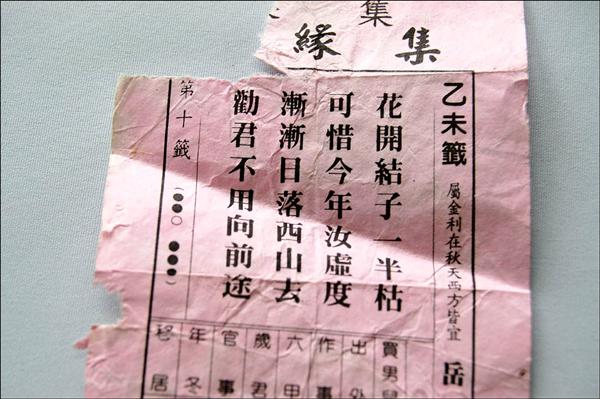 集
緣集
乙未籤 屬金利在秋天西方皆宜 岳
花開結子一半枯
可惜今年汝虛度
漸漸日落西山去
勸君不用向前途
第十籤
買男兒
出外
作事
六甲
歲君
官事
年冬
移居